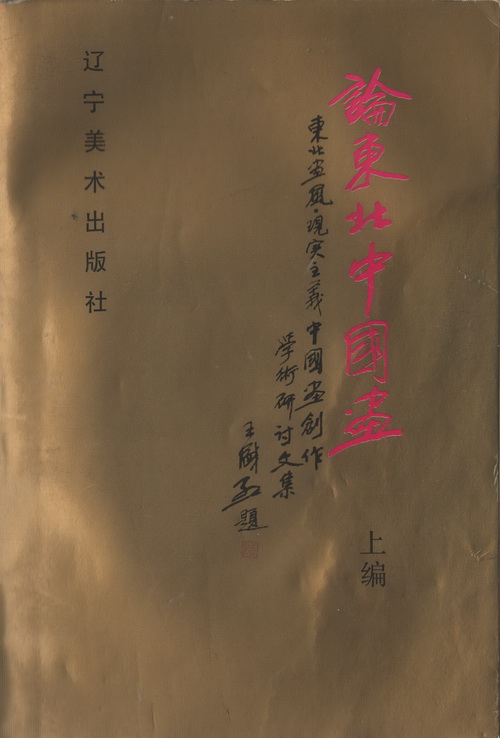 論東北中國画
上编
東北画風·現実主義中國画創作
學術研讨文集
王盛烈題
辽宁美术出版社